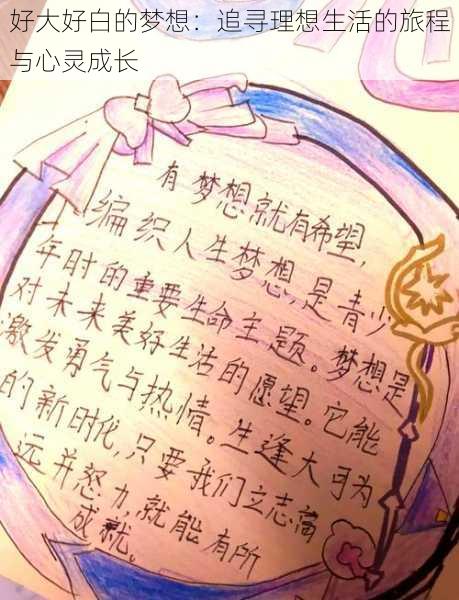 好大好白的梦想：追寻理想生活的旅程
与心灵成长
有梦想就有希望，
编织人生梦想，是青少
年时的重要生命主题。梦想是
对未来美好生活的愿望。它能
激发勇气与热情。生逢大可为
的新时代，只要我们立志高
远并努力，就能有所
成就。